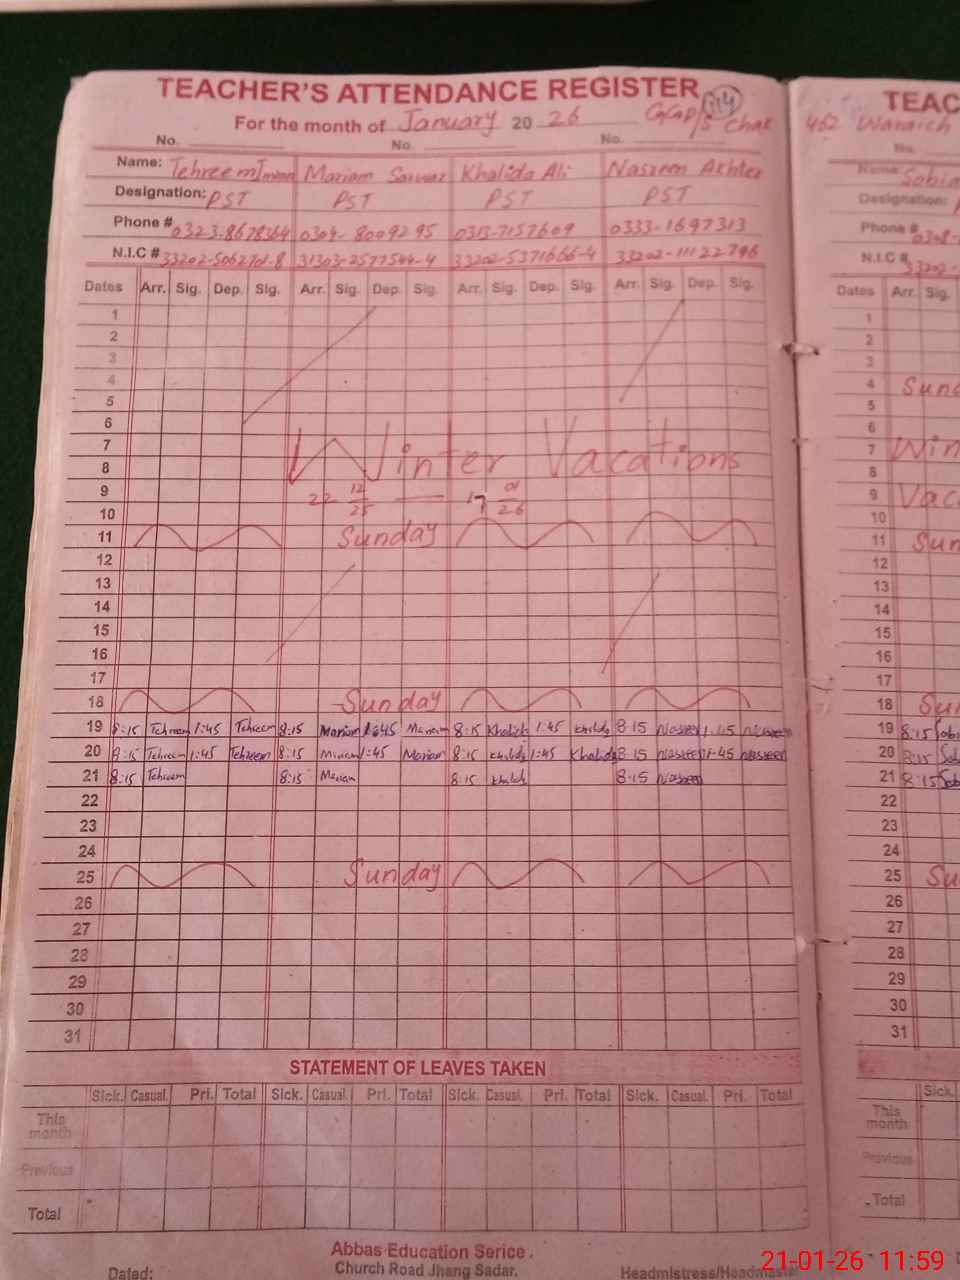 TEACHER'S ATTENDANCE REGISTER
114
For the month of January 2026 GGCMP/S Chak
No. No. No.
Name: Tehreem Imran Mariam Sarwar Khalida Ali Nasreen Akhter
Designation: PST PST PST PST
Phone # 0323-8678364 0304-8009295 0313-7157609 0333-1697313
N.I.C # 31303-2577544-4 33202-5371666-4 33202-1112 2796
Dates Arr. Sig. Dep. Sig. Arr. Sig. Dep. Sig. Arr. Sig. Dep. Sig. Arr. Sig. Dep. Sig.
1
2
3
4
5
6
7
8 Winter Vacations
9 22 12/25 — 17 01/26
10
11 Sunday
12
13
14
15
16
17
18 Sunday
19 8:15 Tehreem 1:45 Tehreem 8:15 Mariam 1:45 Mariam 8:15 Khalida 1:45 Khalida 8:15 Nasreen 1:45 Nasreen
20 8:15 Tehreem 1:45 Tehreem 8:15 Mariam 1:45 Mariam 8:15 Khalida 1:45 Khalida 8:15 Nasreen 1:45 Nasreen
21 8:15 Tehreem 8:15 Mariam 8:15 Khalida 8:15 Nasreen
22
23
24
25 Sunday
26
27
28
29
30
31
STATEMENT OF LEAVES TAKEN
Sick. Casual. Pri. Total Sick. Casual. Pri. Total Sick. Casual. Pri. Total Sick. Casual. Pri. Total
This month
Previous
Total
Abbas Education Serice.
Church Road Jhang Sadar.
Dated: Headmistress/Headmaster
TEAC
462 Warraich
No.
Name Sobia
Designation:
Phone # 0308-
N.I.C # 33202-
Dates Arr. Sig.
1
2
3
4 Sund
5
6
7 Win
8
9 Vac
10
11 Sun
12
13
14
15
16
17
18 Su
19 8:15 Sobi
20 8:15 So
21 8:15 Sob
22
23
24
25 Su
26
27
28
29
30
31
Sick
This month
Previous
Total
21-01-26 11:59